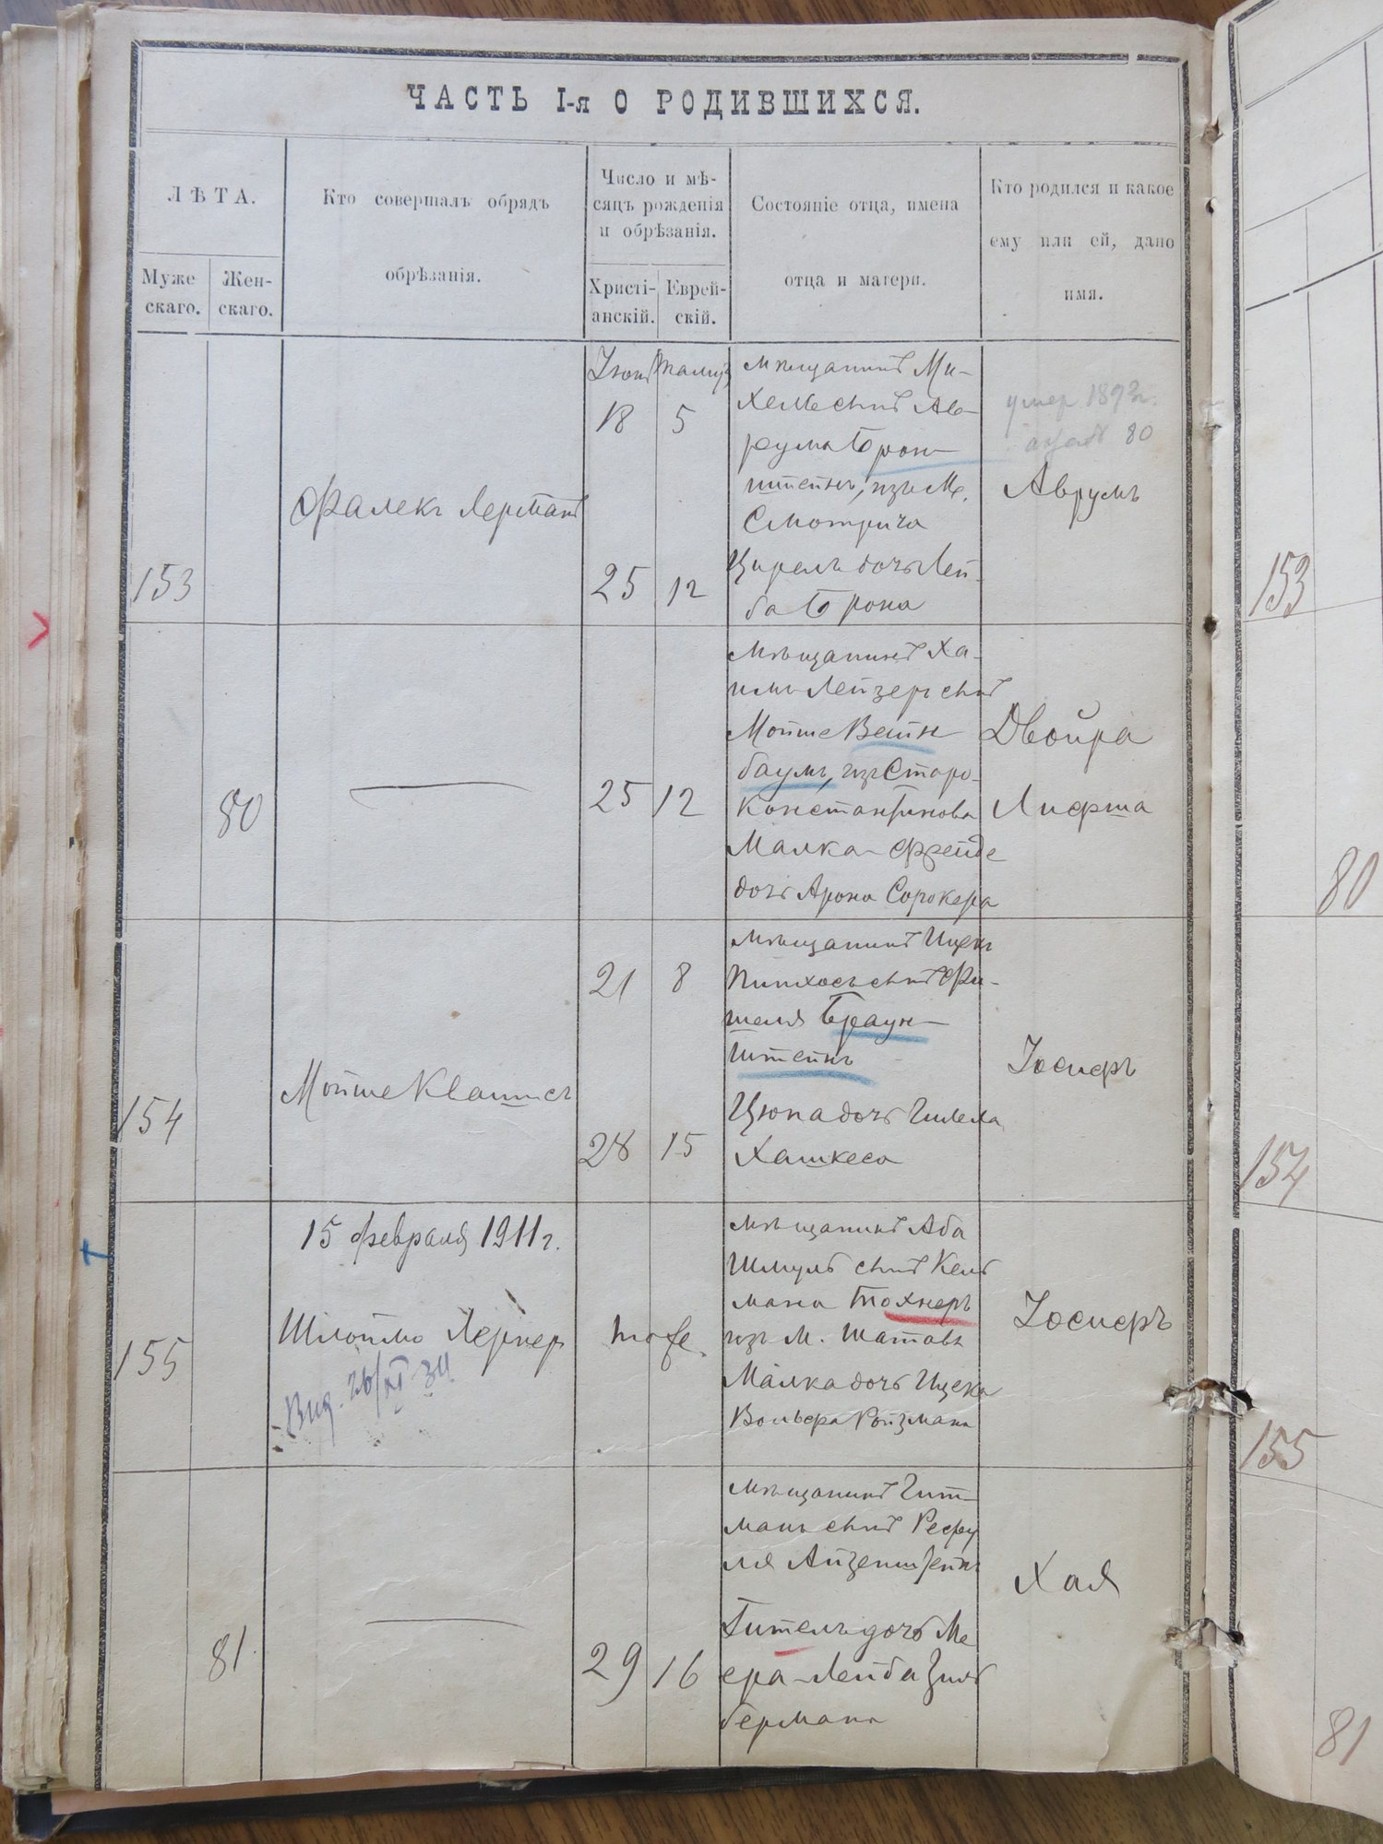 ЧАСТЬ I-я О РОДИВШИХСЯ.
ЛѢТА.
Муже
скаго.
Жен-
скаго.
Кто совершалъ обрядъ
обрѣзанія.
Число и мѣ-
сяцъ рожденія
и обрѣзанія.
Христі-
анскій.
Еврей-
скій.
Состояніе отца, имена
отца и матери.
Кто родился и какое
ему или ей, дано
имя.
153
Фалекъ Лерман
Іюнь Тамуз
18 5
25 12
мѣщанинъ Ми-
хель сынъ Ав-
рума Брон-
штейнъ, изъ М.
Смотрича
Цирель дочь Лей-
ба Брона
умер 1892г.
80
Аврумъ
153
80
25 12
мѣщанинъ Ха-
имъ Лейзеръ сынъ
Мойше Вейн-
баумъ, изъ Старо-
константинова
Малка-Фрейде
дочь Арона Сорокера
Двойра
80
154
Мойше
21 8
28 15
мѣщанинъ
Пинхосъ сынъ Фи-
шеля Браун-
штейнъ
Цюпа дочь Гилела
Хашкеса
Іосифъ
154
155
15 февраля 1911г.
Шлоймо Лернер
Выд.
тоже
мѣщанинъ Аба
Шмуль сынъ Кель
мана Тохнеръ
изъ М. Шатавъ
Малка дочь Ицека
Вольфа Ройзмана
Іосифъ
155
81
29 16
мѣщанинъ Гит-
манъ сынъ Рефу
ля Айзенштейнъ
Гитель дочь Ме
ера-Лейба Зиль
бермана
Хая
81